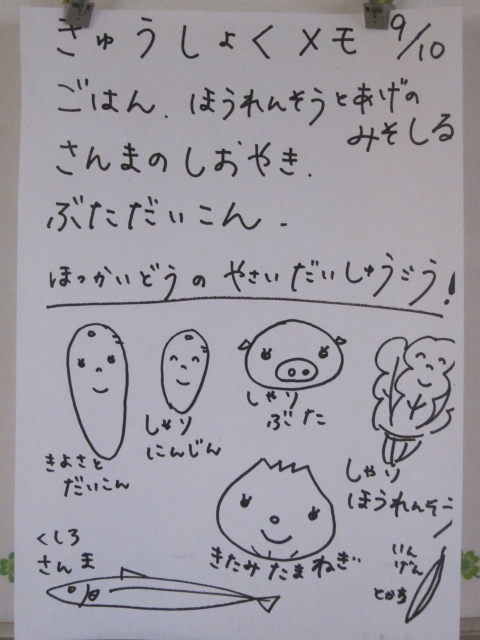 きゅうしょくメモ 9/10
ごはん. ほうれんそうとあげの
みそしる
さんまのしおやき.
ぶただいこん.
ほっかいどうの やさい だいしゅうごう!
きよさと
だいこん
しゃり
にんじん
しゃり
ぶた
しゃり
ほうれんそう
くしろ
さんま
きたみ たまねぎ
いん
げん
とかち